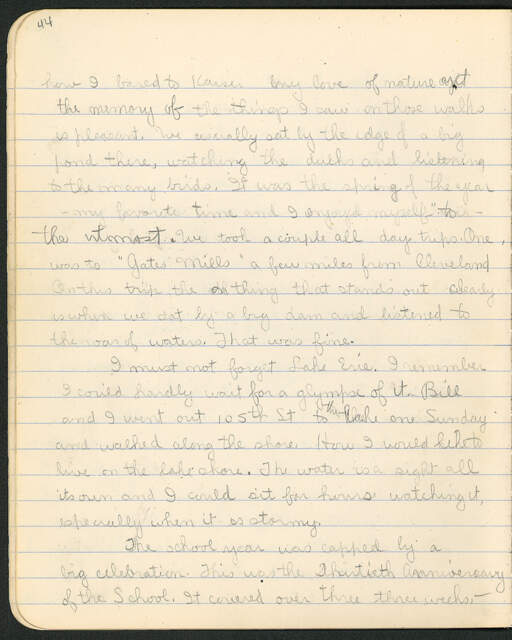 44
how I bared to Kaiser my love of nature and
the memory of the things I saw on those walks
is pleasant. We usually sat by the edge of a big
pond there, watching the ducks and listening
to the many birds. It was the spring of the year
- my favorite time and I enjoyed myself to -
the utmost. We took a couple all day trips. One
was to "Gates Mills" a few miles from Cleveland
On this trip the thing that stands out clearly
is when we sat by a big dam and listened to
the roar of waters. That was fine.
I must not forget Lake Erie. I remember
I could hardly wait for a glympse of it. Bill
and I went out 105th St to the lake one Sunday
and walked along the shore. How I would like to
live on the lake shore. The water is a sight all
its own and I could sit for hours watching it,
especially when it is stormy.
The school year was capped by a
big celebration. This was the Thirtieth Anniversary
of the School. It covered over three three weeks -